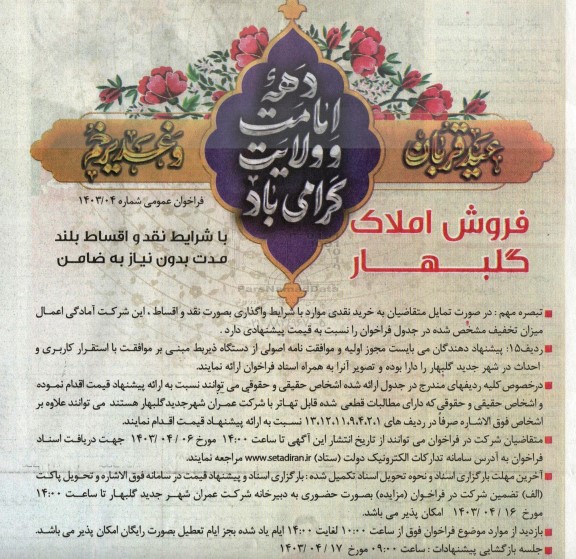 دههٔ
امامت
و ولایت
گرامی باد
عید قربان
و غدیر خم
فراخوان عمومی شماره ۱۴۰۳/۰۴
فروش املاک
گلبهار
با شرایط نقد و اقساط بلند
مدت بدون نیاز به ضامن
تبصره مهم : در صورت تمایل متقاضیان به خرید نقدی موارد با شرایط واگذاری بصورت نقد و اقساط ، این شرکت آمادگی اعمال
میزان تخفیف مشخص شده در جدول فراخوان را نسبت به قیمت پیشنهادی دارد .
ردیف۱۵: پیشنهاد دهندگان می بایست مجوز اولیه و موافقت نامه اصولی از دستگاه ذیربط مبنی بر موافقت با استقرار کاربری و
احداث در شهر جدید گلبهار را دارا بوده و تصویر آنرا به همراه اسناد فراخوان ارائه نمایند.
درخصوص کلیه ردیفهای مندرج در جدول ارائه شده اشخاص حقیقی و حقوقی می توانند نسبت به ارائه پیشنهاد قیمت اقدام نموده
و اشخاص حقیقی و حقوقی که دارای مطالبات قطعی شده قابل تهاتر با شرکت عمران شهرجدیدگلبهار هستند می توانند علاوه بر
اشخاص فوق الاشاره صرفاً در ردیف های ۱۳،۱۲،۱۱،۹،۴،۲،۱ نسبت به ارائه پیشنهاد قیمت اقدام نمایند.
متقاضیان شرکت در فراخوان می توانند از تاریخ انتشار این آگهی تا ساعت ۱۴:۰۰ مورخ ۰۶ / ۰۴ / ۱۴۰۳ جهت دریافت اسناد
فراخوان به آدرس سامانه تدارکات الکترونیک دولت (ستاد) www.setadiran.ir مراجعه نمایند.
آخرین مهلت بارگزاری اسناد و نحوه تحویل اسناد تکمیل شده : بارگزاری اسناد و پیشنهاد قیمت در سامانه فوق الاشاره و تحویل پاکت
(الف) تضمین شرکت در فراخوان (مزایده) بصورت حضوری به دبیرخانه شرکت عمران شهر جدید گلبهار تا ساعت ۱۴:۰۰
مورخ ۱۶ / ۰۴ / ۱۴۰۳ امکان پذیر می باشد.
بازدید از موارد موضوع فراخوان فوق از ساعت ۱۰:۰۰ لغایت ۱۴:۰۰ ایام یاد شده بجز ایام تعطیل بصورت رایگان امکان پذیر می باشد.
جلسه بازگشایی پیشنهادات : ساعت ۰۹:۰۰ مورخ ۱۷ / ۰۴ / ۱۴۰۳